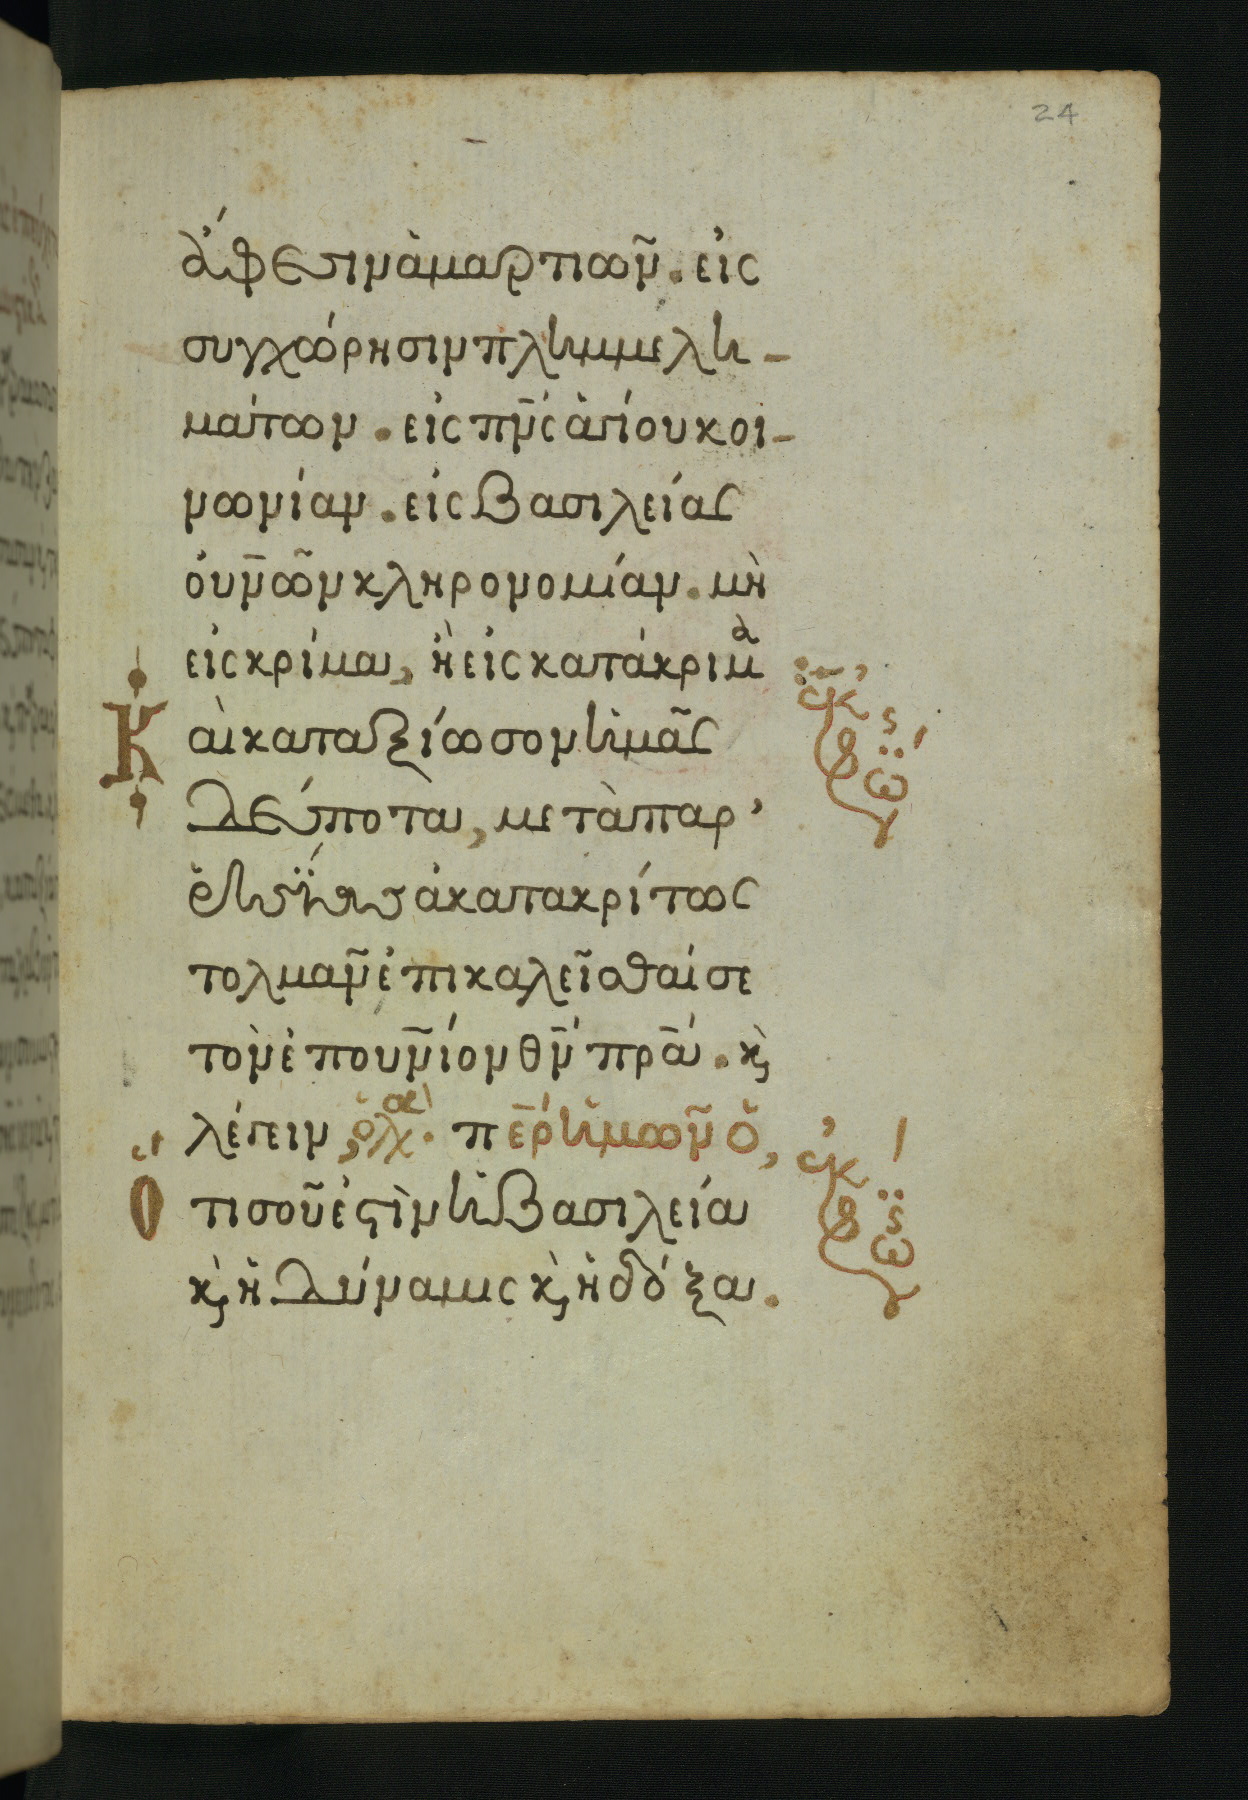 24
ἄφεσιν ἁμαρτιῶν. εἰς
συγχώρησιν πλημμελη-
μάτων. εἰς πν̅ς ἁγίου κοι-
νωνίαν. εἰς βασιλείας
οὐν̅ῶν κληρονομίαν. μὴ
εἰς κρίμα, ἢ εἰς κατάκριμα
Καὶ καταξίωσον ἡμᾶς
δέσποτα, μετὰ παρ
ρησίας ἀκατακρίτως
τολμᾶν ἐπικαλεῖσθαί σε
τὸν ἐπουν̅ιον θν̅ πρ̅α. κ̀
λέγειν, ὁ λα π̅ερ ἡμῶν ὁ,
ἐκφω
Ὅτι σοῦ ἐστὶν ἡ βασιλεία
κ̀ ἡ δύναμις κ̀ ἡ δόξα.
ἐκφω